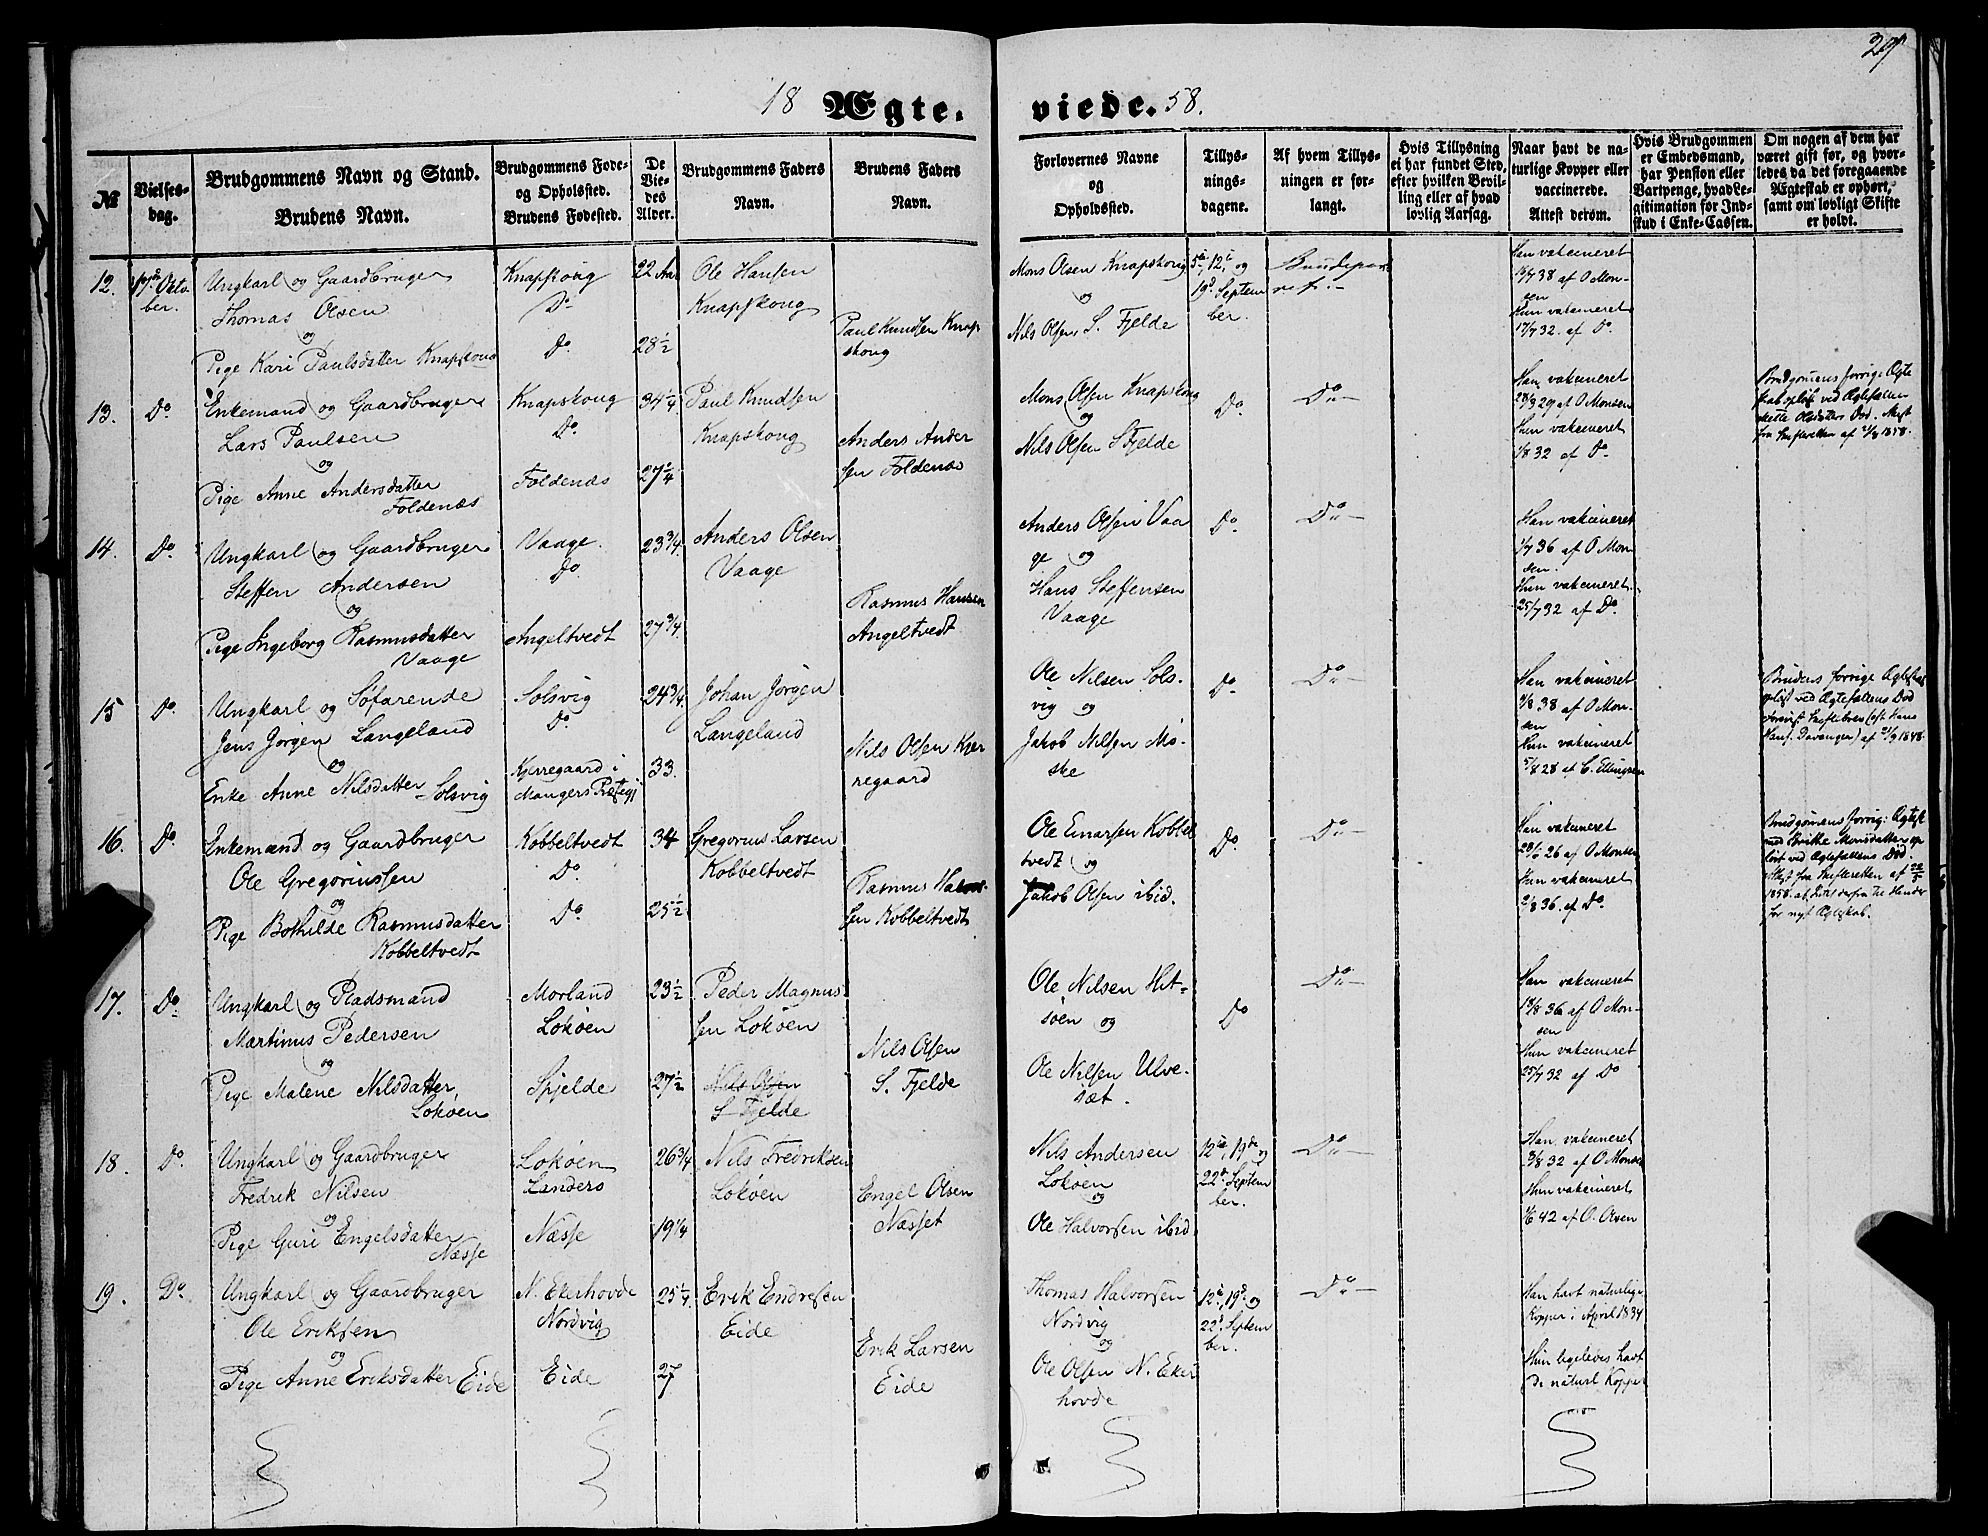 29
18 Ægte-
viede. 58.
№
Vielses-
dag.
Brudgommens Navn og Stand.
Brudens Navn.
Brudgommens Føde-
og Opholdssted.
Brudens Fødested.
De
Vie-
des
Alder.
Brudgommens Faders
Navn.
Brudens Faders
Navn.
Forlovernes Navne
og
Opholdssted.
Tillys-
nings-
dagene.
Af hvem Tillys-
ningen er for-
langt.
Hvis Tillysning
ei har fundet Sted,
efter hvilken Bevil-
ling eller af hvad
lovlig Aarsag.
Naar havt de na-
turlige Kopper eller
vaccinerede.
Attest derom.
Hvis Brudgommen
er Embedsmand,
har Pension eller
Vartpenge, hvad Le-
gitimation for Ind-
skud i Enke-Cassen.
Om nogen af dem har
været gift før, og hvor-
ledes da det foregaaende
Ægteskab er ophørt,
samt om lovligt Skifte
er holdt.
12.
Okto-
ber.
Ungkarl og Gaardbruger
Thomas Olsen
og
Pige Kari Paulsdatter Knapskoug
Knapskoug
Do
Do.
22 Aar
28½
Ole Hansen
Knapskoug
Paul Knudsen Knap
skoug
Mons Olsen Knapskoug
og
Nils Olsen S. Fjelde
5te, 12te og
19de Septem
ber.
Han vakcineret
38 af O Mon-
sen
Hun vakcineret
17/7 32. af Do.
13.
Do
Enkemand og Gaardbruger
Lars Paulsen
og
Pige Anne Andersdatter
Foldenæs
Knapskoug
Do.
Foldenæs
34¼
27¼
Paul Knudsen
Knapskoug
Anders Ander
sen Foldenæs
Mons Olsen Knapskoug
og
Nils Olsen SFjelde
Do.
Do
Han vakcineret
29 af O Monsen
Hun vakcineret
32 af Do
Brudgomens forrige Ægte
skab opløst ved Ægtefællen
Mette Olsdatters Død. Attest
fra Skifteretten af 1858.
14.
Do.
Ungkarl og Gaardbruger
Steffen Andersen
og
Pige Ingeborg Rasmusdatter
Vaage
Vaage.
Do.
Angeltvedt
23¾
27¾
Anders Olsen
Vaage
Rasmus Hansen
Angeltvedt
Anders Olsen Vaa
ge og
Hans Steffensen
Vaage
Do.
Do
Han vakcineret
36 af O Mon-
sen.
Hun vakcineret
25/7 32 af Do.
15
Do.
Ungkarl og Søfarende
Jens Jørgen Langeland
og
Enke Anne Nilsdatter Solsvig
Solsvig
Do.
Kjerregaard i
Mangers Præstegj
24¾
33.
Johan Jørgen
Langeland
Nils Olsen Kjer
regaard
Ole Nilsen Sols-
vig og
Jakob Nilsen Mo-
ske
Do.
Do
Han vakcineret
38 af O Mon-
sen
Hun vakcineret
28 af C. Ellingsen
Brudens forrige Ægteskab
opløst ved Ægtefællens Død
16.
Do.
Enkemand og Gaardbruger
Ole Gregoriussen
og
Pige Bothilde Rasmusdatter
Kobbeltvedt
Kobbeltvedt
Do.
Do
34
25½
Gregorius Larsen
Kobbeltvedt
Rasmus
sen Kobbeltvedt
Ole Einarsen Kobbel
tvedt og
Jakob Olsen ibid.
Do.
Do
Han vakcineret
26 af O Monsen
Hun vakcineret
2/8 36 af Do.
Brudgomens forrige Ægtesk
opløst ved Ægtefællens Død.
Attest fra Skifteretten af
1858
for nyt Ægteskab.
17.
Do.
Ungkarl og Pladsmand
Martinus Pedersen
og
Pige Malene Nilsdatter
Lokøen
Morland
Lokøen
Spjelde
23½
27½
Peder Magnus
sen Lokøen
Nils Olsen
S Fjelde
Nils Olsen
S. Fjelde
Ole Nilsen Hit-
søen og
Ole Nilsen Ulve-
sæt.
Do
Do
Han vakcineret
36 af O Mon-
sen
Hun vakcineret
25/7 32 af Do
18.
Do.
Ungkarl og Gaardbruger
Fredrik Nilsen
og
Pige Guri Engelsdatter
Næsse
Lokøen
Næsse
26¾
19¼
Nils Fredriksen
Lokøen
Engel Olsen
Næsset
Nils Andersen
Lokøen
og
Ole Halvorsen ibid.
12te, 19de og
22de Septem
ber.
Do
Han vakcineret
32 af O Monsen
Hun vakcineret
42 af O. Olsen
19.
Do.
Ungkarl og Gaardbruger
Ole Eriksen
og
Pige Anne Eriksdatter Eide
N. Ekerhovde
Nordvig
Eide
25¼
27
Erik Endresen
Eide
Erik Larsen
Eide
Thomas Halvorsen
Nordvig
og
Ole Olsen N. Eker
hovde
12te, 19de og
22de Septem
ber.
Do
Han havt naturlige
Kopper i April 1834
Hun ligeledes havt
de naturl Kopper